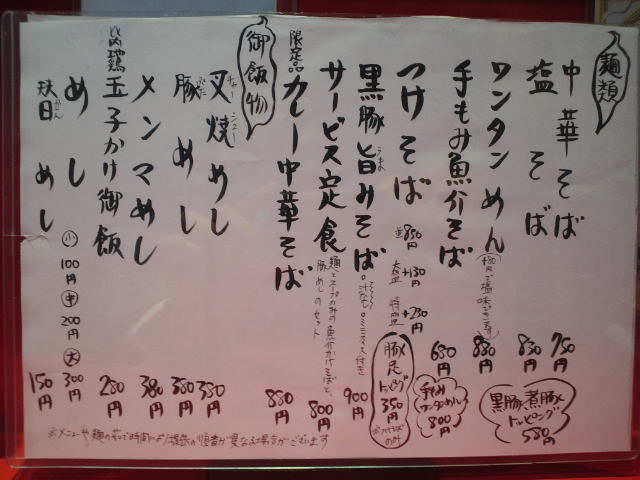 麺類
中華そば 750円
塩そば 830円
ワンタンめん 880円
手もみ魚介そば 680円
手もみワンタンめん 800円
黒豚煮豚トッピング 580円
つけそば 並850円 大盛+130円 特盛+230円
豚足トッピング 350円
黒豚旨みそば 汁なし 900円
サービス定食 麺とスープのみの魚介かけそばと、豚めしのセット 800円
限定品 カレー中華そば 880円
御飯物
叉焼めし 380円
豚めし 380円
メンマめし 380円
比内鶏玉子かけ御飯 280円
めし 小100円 中200円 大300円
めし 150円
※メニューや麺の